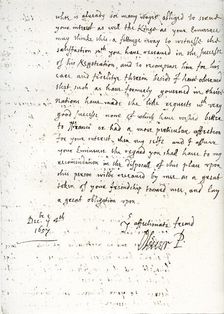 who is already so many wayes obliged to
your interest as well the Kings as your Eminence
may thinke this a fittinge way to witnesse the
satisfaction you have received in the successe
of his Negotiation, and to recompense him for his
care and fidelity therein besides I have observed
that such as have formerly governed in
nations have made the like requests with very
good successe none of which have
to or had a more particular affection
for your interest, then my selfe and I assure
your Eminence the regard you shall have to my
recommendation in the disposall of this place upon
this person wilbe received by mee as a great
token of your friendship toward mee, and lay
a great obligation upon.
Decr 4th
1657
Yr affectionate friend
Oliver P